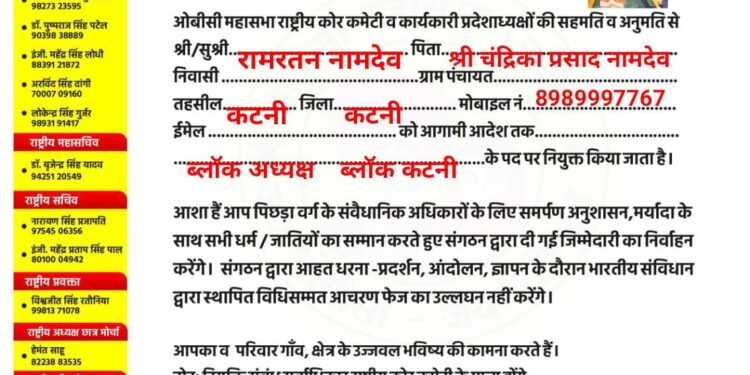 98273 23595
डॉ. पुष्पराज सिंह पटेल
90398 38889
इंजी. महेंद्र सिंह लोधी
88391 21872
अरविंद सिंह दांगी
70007 09160
लोकेन्द्र सिंह गुर्जर
98931 91417
राष्ट्रीय महासचिव
डॉ. बृजेन्द्र सिंह यादव
94251 20549
राष्ट्रीय सचिव
नारायण सिंह प्रजापति
97545 06356
इंजी. महेंद्र प्रताप सिंह पाल
80100 04942
राष्ट्रीय प्रवक्ता
विश्वजीत सिंह रतौनिया
99813 71078
राष्ट्रीय अध्यक्ष छात्र मोर्चा
हेमंत साहू
82238 83535
ओबीसी महासभा राष्ट्रीय कोर कमेटी व कार्यकारी प्रदेशाध्यक्षों की सहमति व अनुमति से
श्री/सुश्री रामरतन नामदेव पिता श्री चंद्रिका प्रसाद नामदेव
निवासी ग्राम पंचायत
तहसील कटनी जिला कटनी मोबाइल नं. 8989997767
ईमेल को आगामी आदेश तक
ब्लॉक अध्यक्ष ब्लॉक कटनी के पद पर नियुक्त किया जाता है।
आशा हैं आप पिछड़ा वर्ग के संवैधानिक अधिकारों के लिए समर्पण अनुशासन,मर्यादा के
साथ सभी धर्म / जातियों का सम्मान करते हुए संगठन द्वारा दी गई जिम्मेदारी का निर्वाहन
करेंगे। संगठन द्वारा आहत धरना -प्रदर्शन, आंदोलन, ज्ञापन के दौरान भारतीय संविधान
द्वारा स्थापित विधिसम्मत आचरण फेज का उल्लघन नहीं करेंगे।
आपका व परिवार गाँव, क्षेत्र के उज्जवल भविष्य की कामना करते हैं।